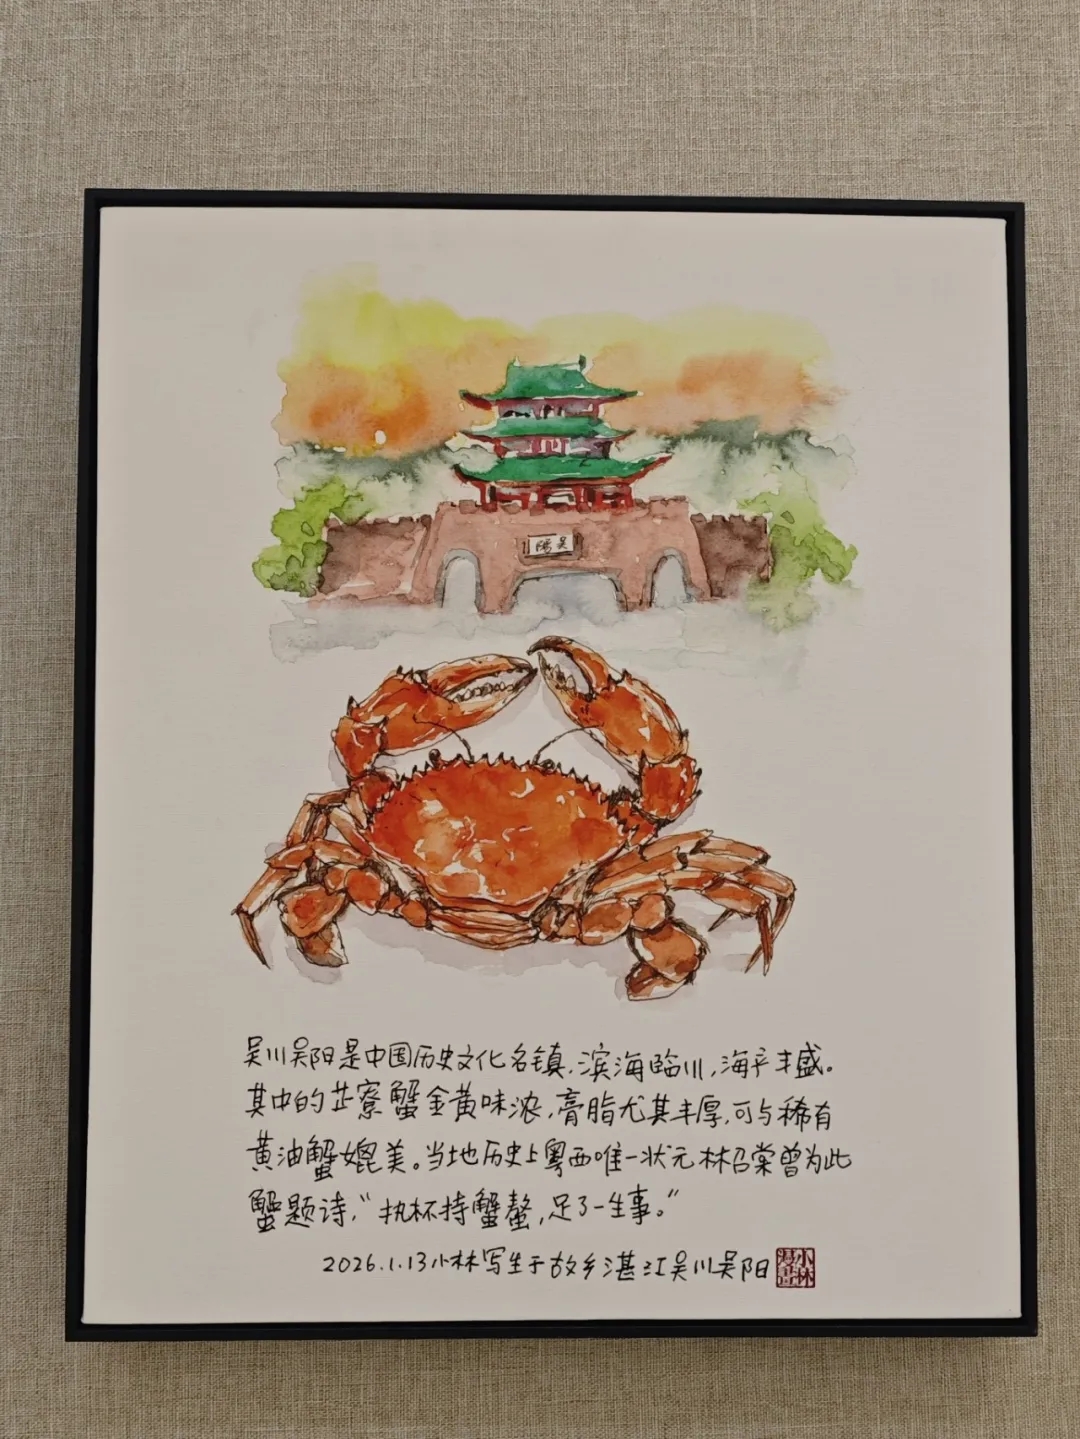 吴阳
吴川吴阳是中国历史文化名镇,滨海临川,海产丰盛。
其中的芷寮蟹金黄味浓,膏脂尤其丰厚,可与稀有
黄油蟹媲美。当地历史上粤西唯一状元林召棠曾为此
蟹题诗,“执杯持蟹螯,足了一生事。”
2026.1.13小林写生于故乡湛江吴川吴阳
小林漫画